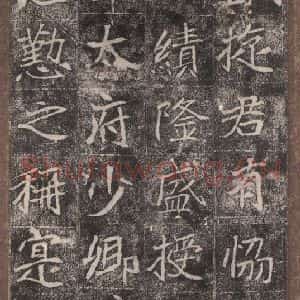 旋君有恊
績隆盛授
太府少卿
懃之稱寔